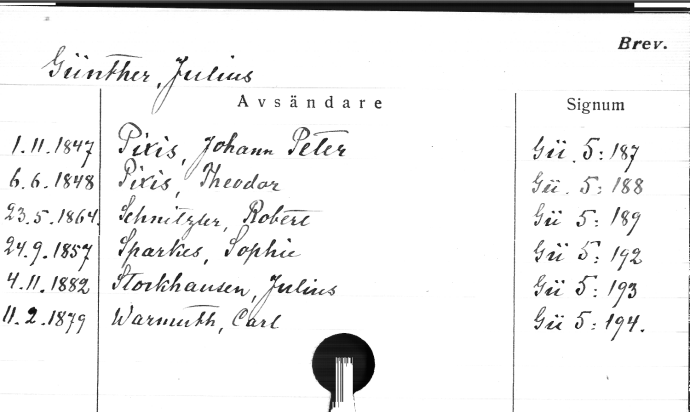 Brev.
Günther, Julius
Avsändare Signum
1.11.1847 Pixis, Johann Peter Gü 5:187
6.6.1848 Pixis, Theodor Gü. 5:188
23.5.1864. Schnitzler, Robert Gü 5:189
24.9.1857 Sparkes, Sophie Gü 5:192
4.11.1882 Stockhausen, Julius Gü 5:193
11.2.1879 Warmuth, Carl Gü 5:194.